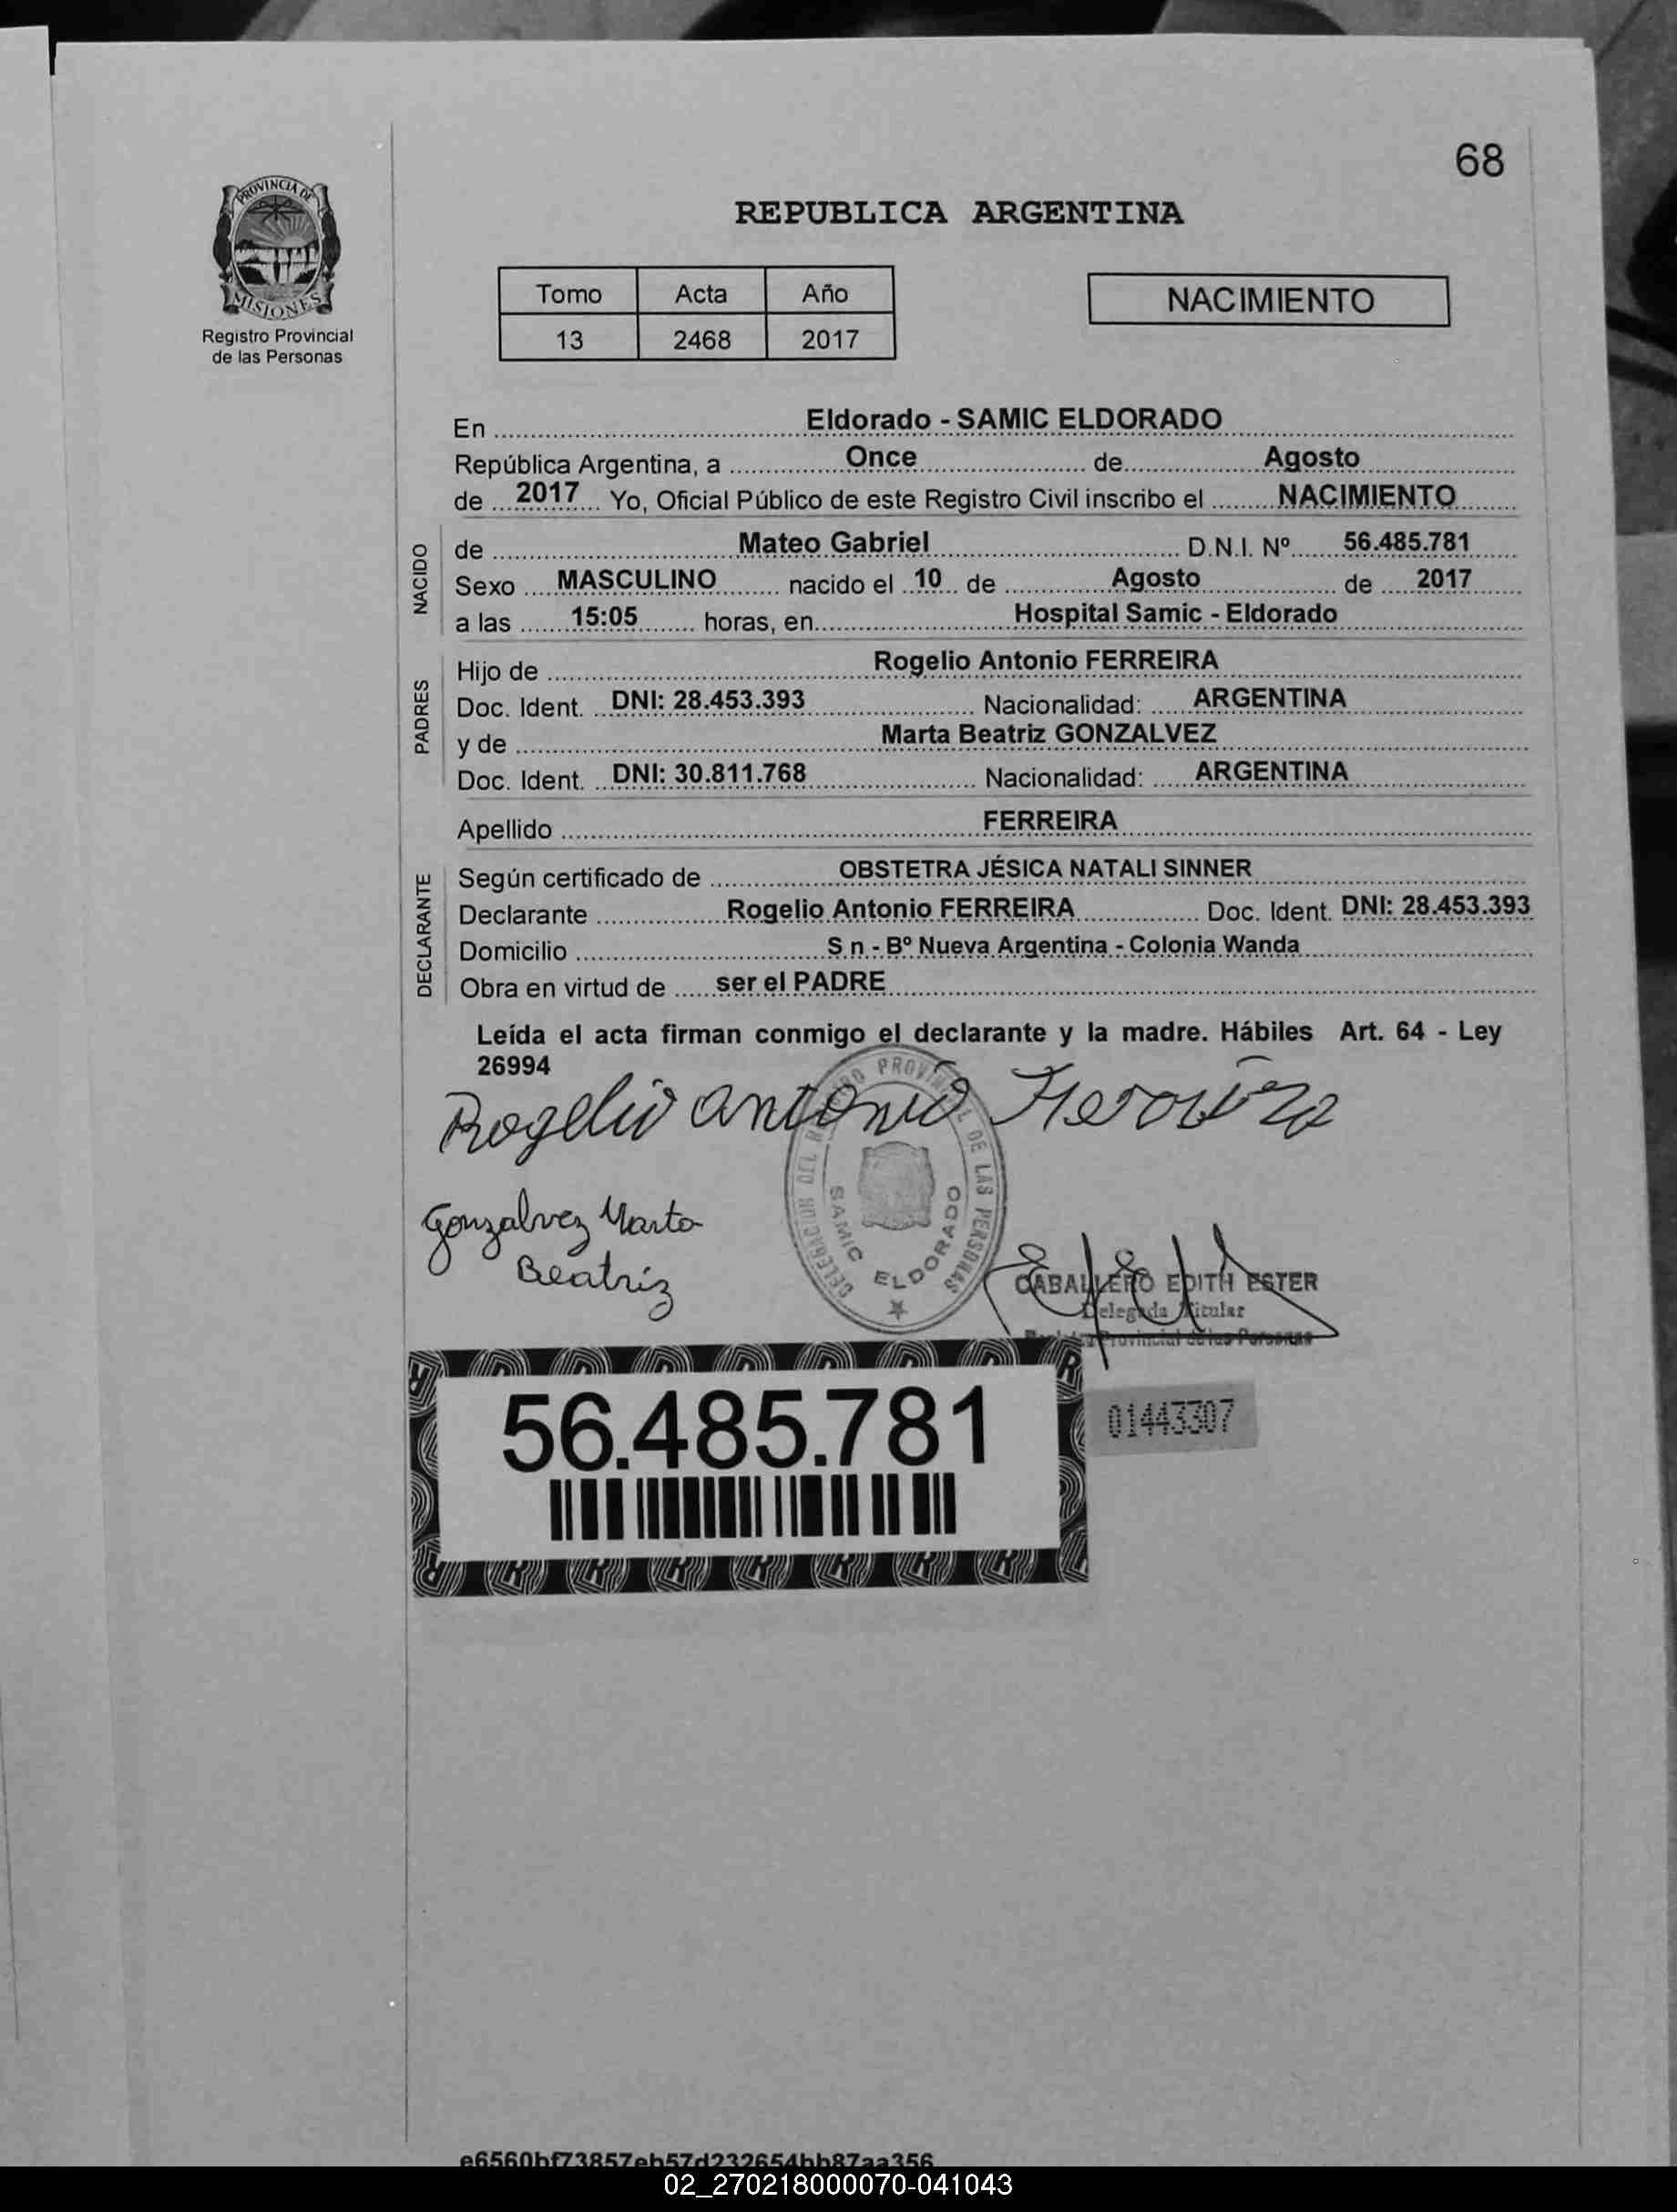 68
PROVINCIA DE
MISIONES
Registro Provincial
de las Personas
REPUBLICA ARGENTINA
Tomo Acta Año
13 2468 2017
NACIMIENTO
En Eldorado - SAMIC ELDORADO
República Argentina, a Once de Agosto
de 2017 Yo, Oficial Público de este Registro Civil inscribo el NACIMIENTO
NACIDO
de Mateo Gabriel D.N.I. Nº 56.485.781
Sexo MASCULINO nacido el 10 de Agosto de 2017
a las 15:05 horas, en Hospital Samic - Eldorado
PADRES
Hijo de Rogelio Antonio FERREIRA
Doc. Ident. DNI: 28.453.393 Nacionalidad: ARGENTINA
y de Marta Beatriz GONZALVEZ
Doc. Ident. DNI: 30.811.768 Nacionalidad: ARGENTINA
Apellido FERREIRA
DECLARANTE
Según certificado de OBSTETRA JÉSICA NATALI SINNER
Declarante Rogelio Antonio FERREIRA Doc. Ident. DNI: 28.453.393
Domicilio S n - Bº Nueva Argentina - Colonia Wanda
Obra en virtud de ser el PADRE
Leída el acta firman conmigo el declarante y la madre. Hábiles Art. 64 - Ley
26994
Rogelio antonio
DELEGACION DEL REGISTRO PROVINCIAL DE LAS PERSONAS
SAMIC ELDORADO
Gonzalvez Marta
Beatriz
CABALLERO EDITH ESTER
Delegada Titular
Registro Provincial de las Personas
56.485.781
01443307
e6560bf73857eb57d232654bb87aa356
02_270218000070-041043